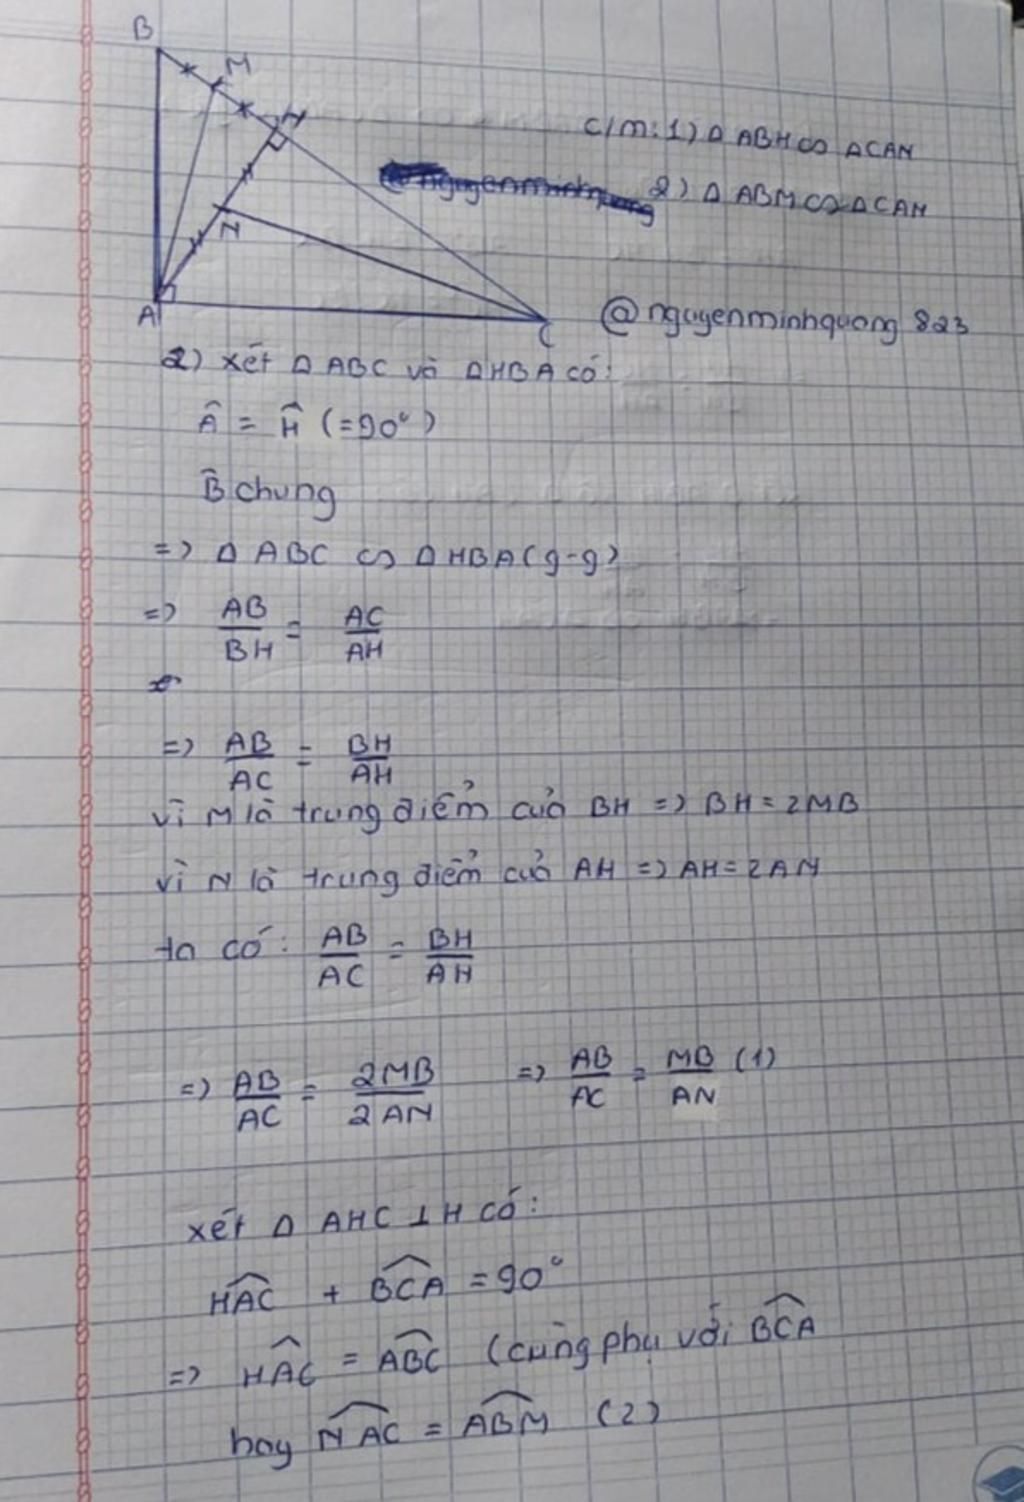 B
M
H
c/m: 1) Δ ABH ∽ ΔCAH
@nguyenminhquang 2) Δ ABM ∽ ΔCAN
N
A
C
@nguyenminhquang 823
2) xét Δ ABC và ΔHBA có:
Â = Ĥ (=90°)
B̂ chung
=> Δ ABC ∽ ΔHBA (g-g)
=> AB/BH = AC/AH
=> AB/AC = BH/AH
vì M là trung điểm của BH => BH = 2MB
vì N là trung điểm của AH => AH = 2AN
ta có: AB/AC = BH/AH
=> AB/AC = 2MB/2AN => AB/AC = MB/AN (1)
xét Δ AHC ⊥ H có:
HAC + BCA = 90°
=> HAC = ABC (cùng phụ với BCA
hay NAC = ABM (2)